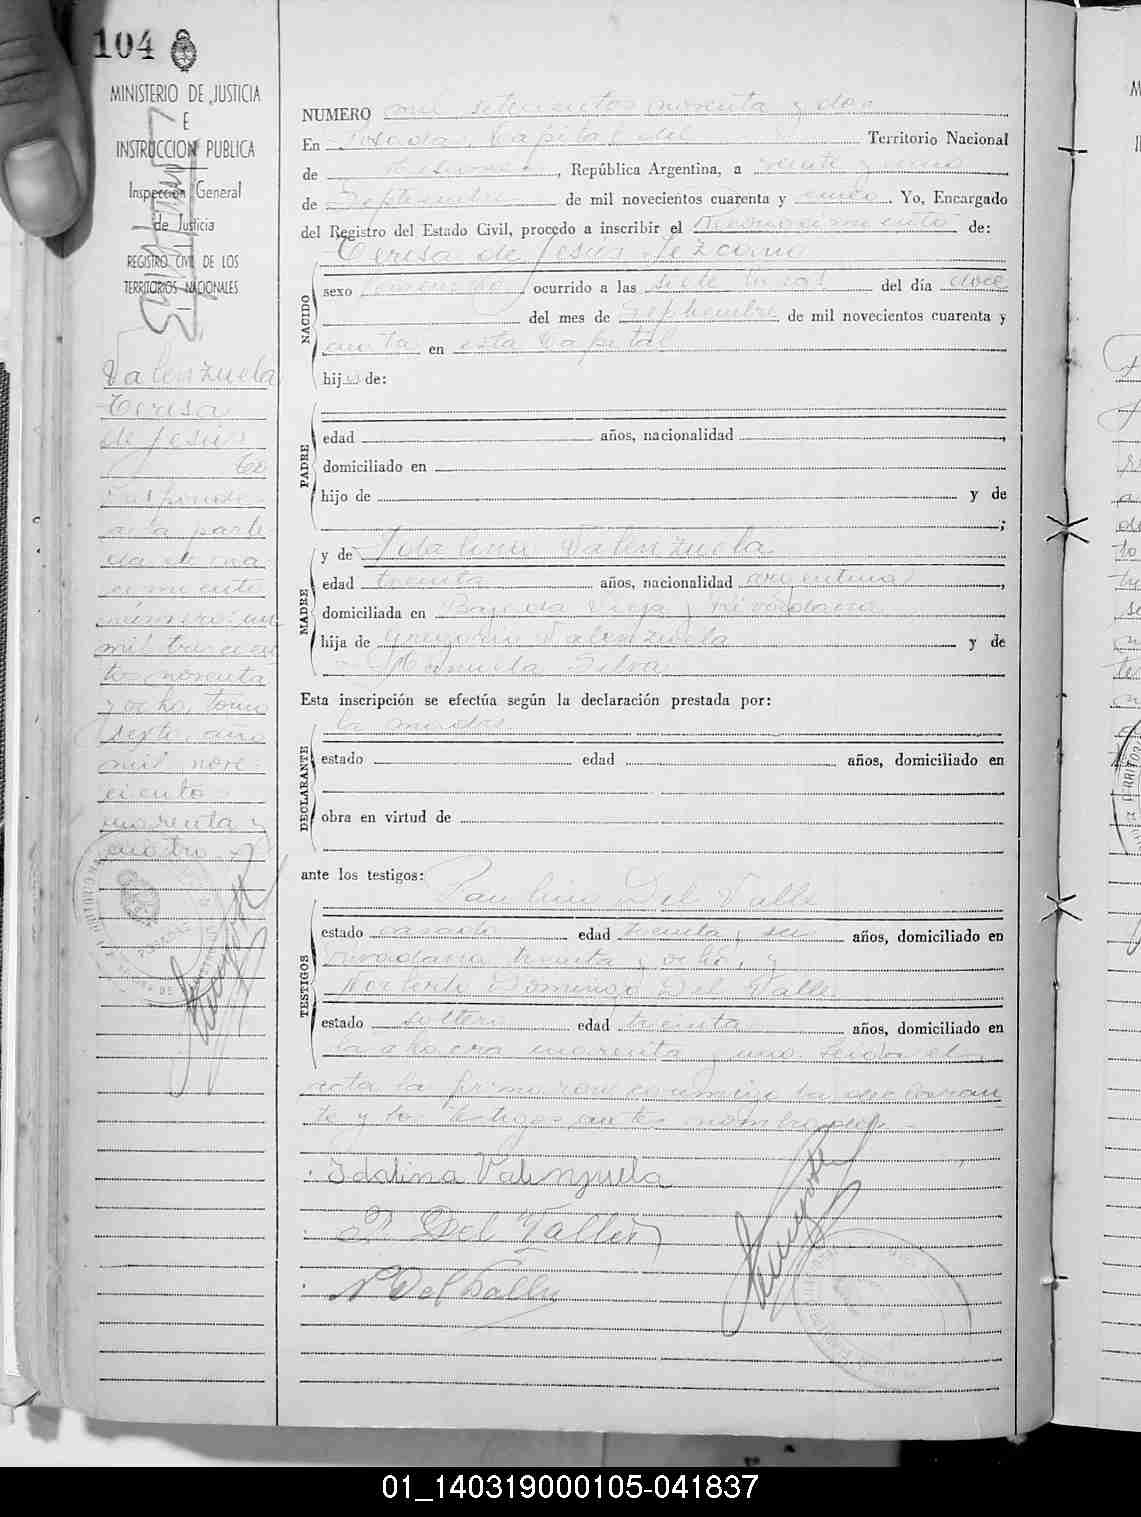 104
MINISTERIO DE JUSTICIA
E
INSTRUCCION PUBLICA
Inspección General
de Justicia
REGISTRO CIVIL DE LOS
TERRITORIOS NACIONALES
Valenzuela
Teresa
de Jesús
acta parti
da de na
cimiento
número: un
mil trescien
tos noventa
y ocho, tomo
sexto, año
mil nove-
cientos
cuarenta y
cuatro
NUMERO mil setecientos noventa y dos
En Posadas, Capital del Territorio Nacional
de Misiones, República Argentina, a veinte
de Septiembre de mil novecientos cuarenta y cinco. Yo, Encargado
del Registro del Estado Civil, procedo a inscribir el Reconocimiento de:
Teresa de Jesús
NACIDO
sexo femenino ocurrido a las siete horas del día doce
del mes de Septiembre de mil novecientos cuarenta y
cuatro en esta Capital
hija de:
PADRE
edad años, nacionalidad ,
domiciliado en
hijo de y de
;
MADRE
y de Idalina Valenzuela
edad treinta años, nacionalidad argentina,
domiciliada en Bajada Vieja y Rivadavia
hija de Gregorio Valenzuela y de
Manuela Silva
Esta inscripción se efectúa según la declaración prestada por:
DECLARANTE
la madre
estado edad años, domiciliado en
obra en virtud de
ante los testigos:
TESTIGOS
Paulino Del Valle
estado casado edad treinta y seis años, domiciliado en
Rivadavia treinta y ocho, y
Norberto Domingo Del Valle
estado soltero edad treinta años, domiciliado en
cuarenta y uno. Leida el
acta la firmaron conmigo la declaran-
te y los testigos antes nombrados.-
Idalina Valenzuela
P. Del Valle
N Del Valle
01_140319000105-041837